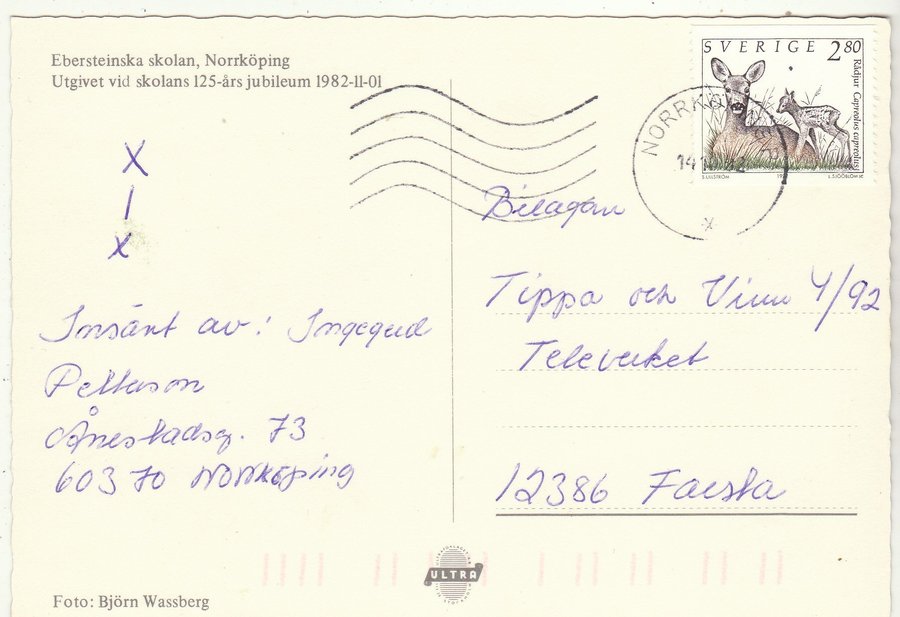 Ebersteinska skolan, Norrköping
Utgivet vid skolans 125-års jubileum 1982-11-01
SVERIGE 2 80
Rådjur Capreolus capreolus
S.ULLSTRÖM
L.SJÖÖBLOM SC
NORRKÖ
X
1
X
Bilagan
Tippa och Vinn 4/92
Televerket
12386 Farsta
Insänt av: Ingegerd
Petterson
Ånestadsg. 73
603 70 Norrköping
ULTRA
Foto: Björn Wassberg